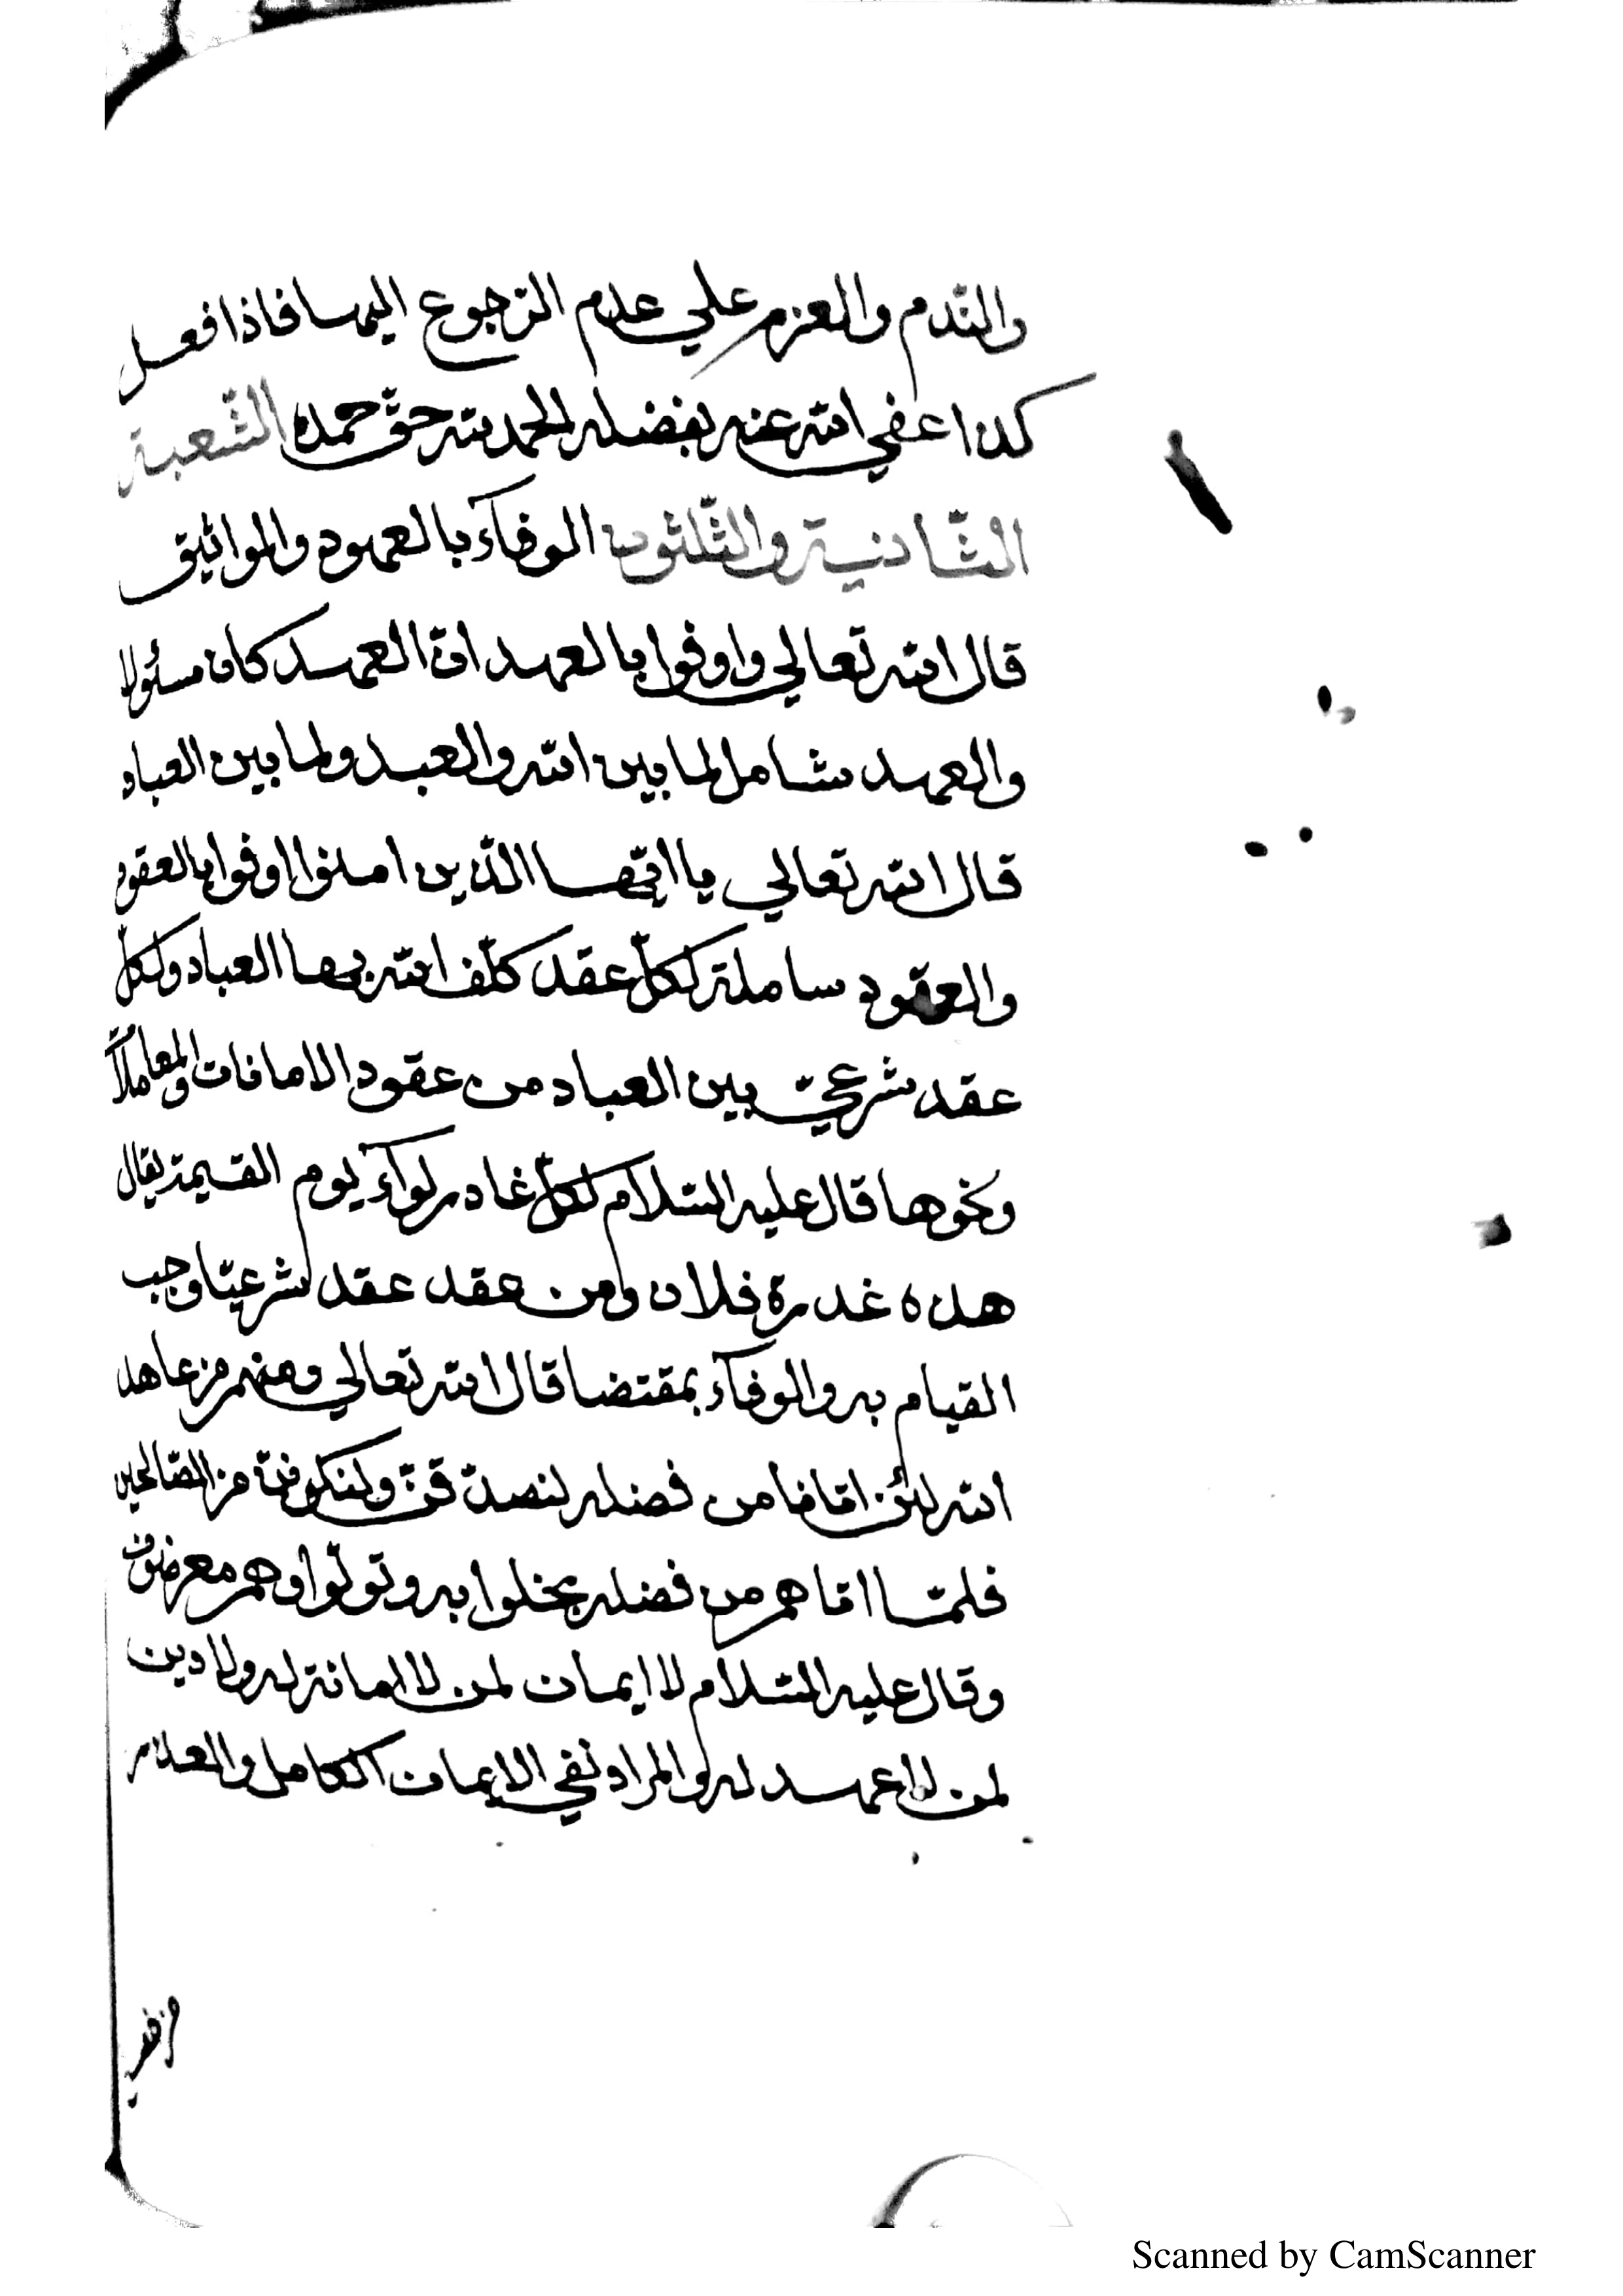 والنّدم والعزم علي عدم الرّجوع اليها فاذا فعل
كذا عفي الله عنه بفضله الحمد لله حقّ حمده الشّعبة
الثّانية والثّلثون الوفآء بالعهود والمواثيق
قال الله تعالي واوفوا بالعهد انّ العهد كان مسئولا
والعهد شامل لما بين الله والعبد ولما بين العباد
قال الله تعالي يا ايّها الّذين امنوا اوفوا بالعقود
والعقود ساملة لكلّ عقد كلّف الله بها العباد ولكلّ
عقد شرعيّ بين العباد من عقود الامانات والمعاملات
ونحوها قال عليه السّلام لكلّ غادر لوآء يوم القيمة يقال
هذه غدرة فلان ومن عقد عقد شرعيّا وجب
القيام به والوفآء بمقتضا قال الله تعالي ومنهم من عاهد
الله لئن اتانا من فضله لنصدّقنّ ولنكوننّ من الصّالحين
فلمّا اتاهم من فضله بخلوا به وتولّوا وهم معرضون
وقال عليه السّلام لا ايمان لمن لا امانة له ولا دين
لمن لا عهد له والمراد نفي الايمان الكامل والعلام
Scanned by CamScanner